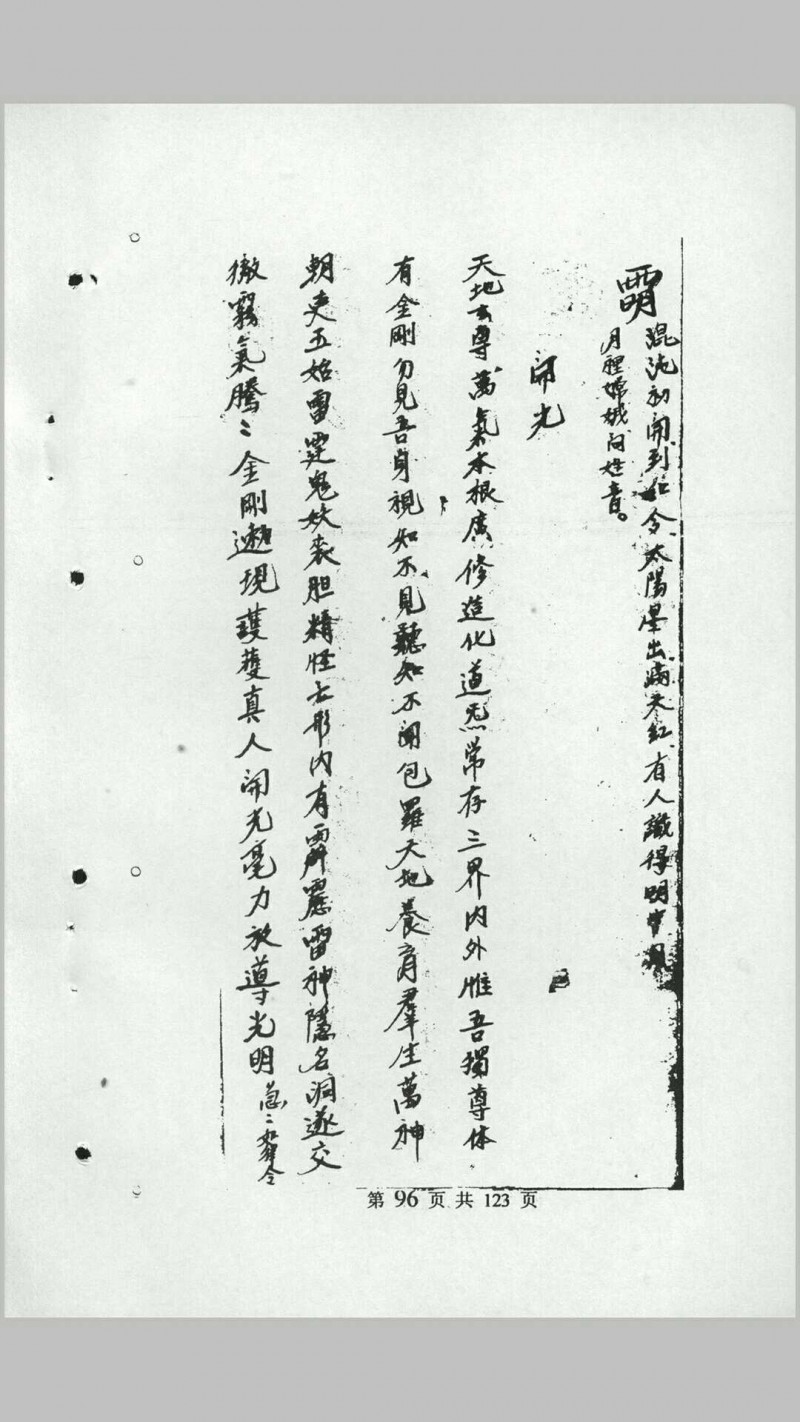 混沌初開到如今太陽星出滿天紅有人識得明中
月裡嫦娥问姓音。
開光
天地玄尊萬氣本根廣修造化道炁常存三界内外惟吾獨尊体
有金剛勿見吾身視如不見聽知不聞包羅天地養育羣生萬神
朝吏五始雷霆鬼妖丧胆精怪亡形内有霹靂雷神隱名洞遂交
徹霧氣騰〻金剛邀現護蓌真人開光亮力放導光明急〻如律令
第 96 页 共 123 页